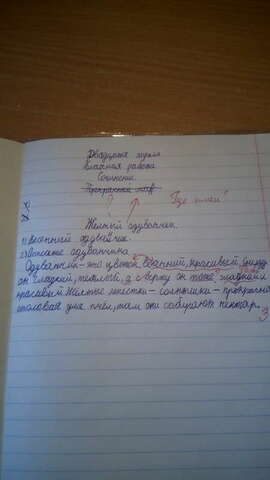 Двадцатое
Классная работа
Сочинение.
Где план?
Жёлтый одуванчик.
1) весенний одуванчик.
2) Описание одуванчика
Одуванчик – это цветок весенний, красивый, снизу
он гладкий, тёплый, а сверху он тоже гладкий и
красивый. Жёлтые лепестки – солнышки – прекрасная
столовая для пчёл, там они собирают нектар.
3